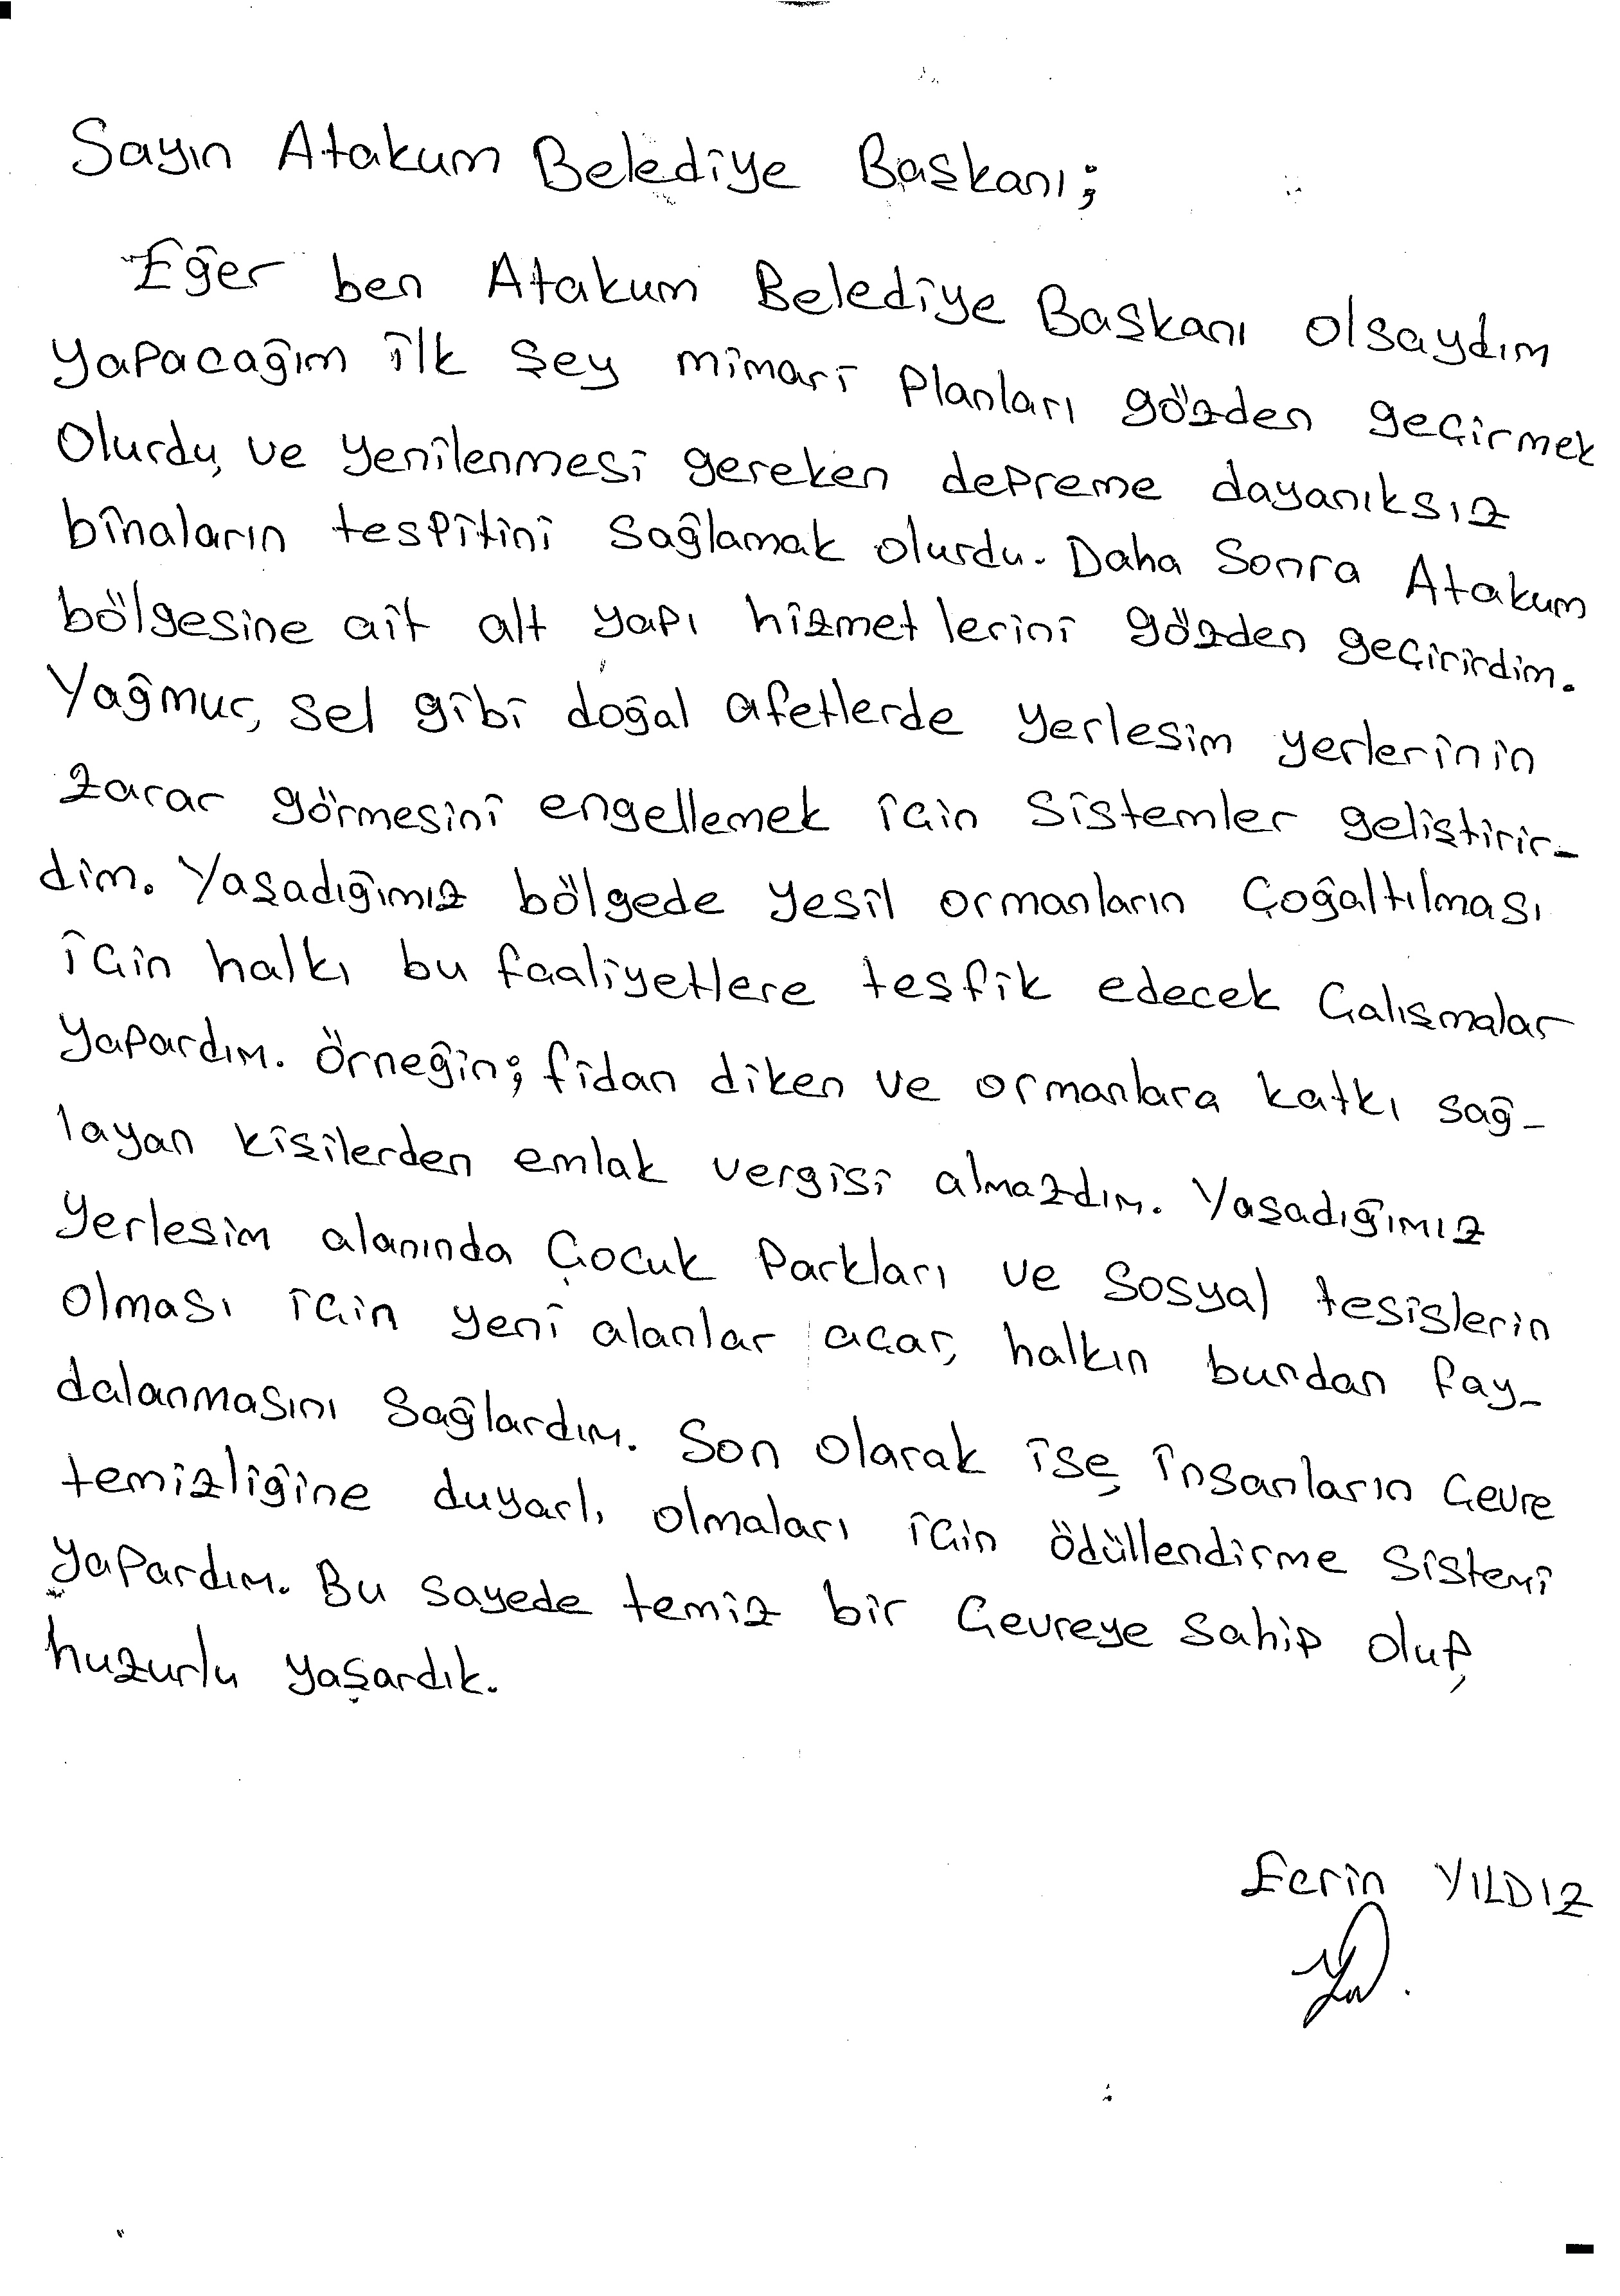 Sayın Atakum Belediye Başkanı;
Eğer ben Atakum Belediye Başkanı olsaydım
yapacağım ilk şey mimari planları gözden geçirmek
olurdu, ve yenilenmesi gereken depreme dayanıksız
binaların tespitini sağlamak olurdu. Daha Sonra Atakum
bölgesine ait alt yapı hizmetlerini gözden geçirirdim.
Yağmur, sel gibi doğal afetlerde yerlesim yerlerinin
zarar görmesini engellemek için sistemler geliştirir-
dim. Yaşadığımız bölgede yesil ormanların çoğaltılması
için halkı bu faaliyetlere teşfik edecek çalışmalar
yapardım. Örneğin; fidan diken ve ormanlara katkı sağ-
layan kişilerden emlak vergisi almazdım. Yaşadığımız
yerleşim alanında Çocuk Parkları ve Sosyal tesislerin
olması için yeni alanlar açar, halkın burdan fay-
dalanmasını sağlardım. Son olarak ise, insanların çevre
temizliğine duyarlı olmaları için ödüllendirme sistemi
yapardım. Bu sayede temiz bir çevreye sahip olup,
huzurlu yaşardık.
Ecrin YILDIZ